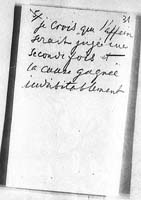 31
je crois que l'affaire
serait jugée une
seconde fois et
la cause gagnée
indubitablement